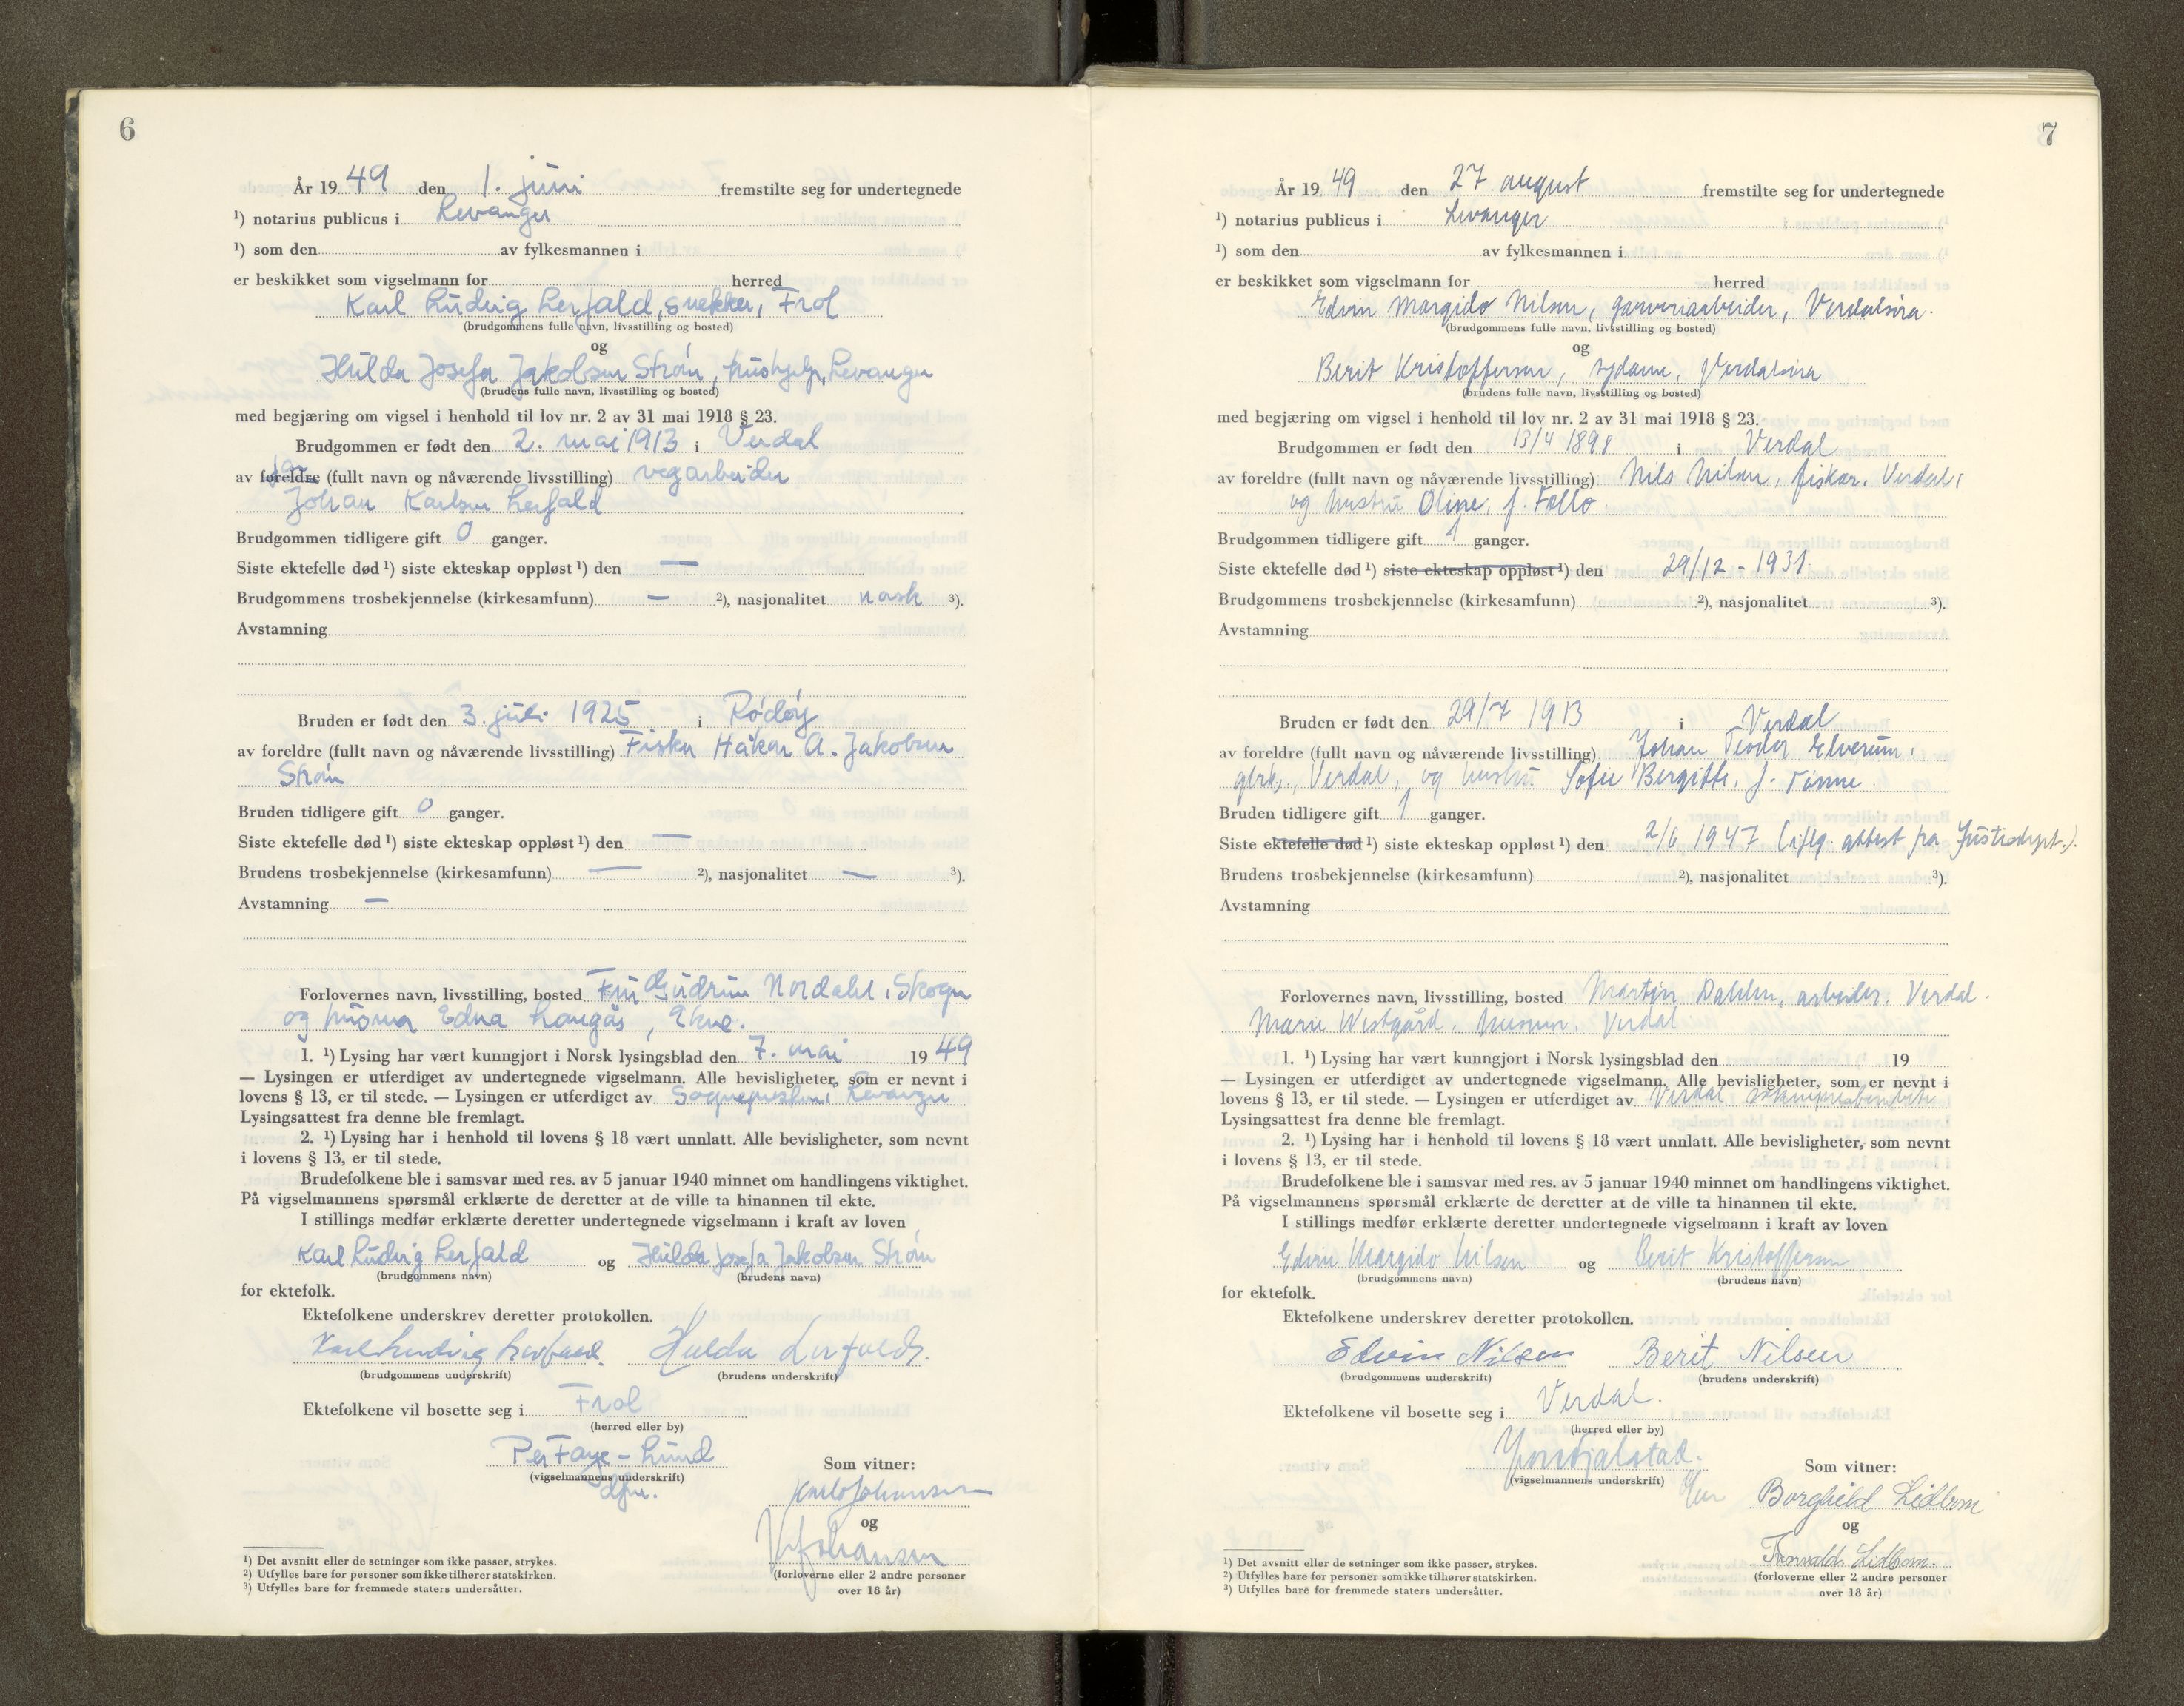 6
År 19 49 den 1. juni fremstilte seg for undertegnede
¹) notarius publicus i Levanger
¹) som den av fylkesmannen i
er beskikket som vigselmann for herred
Karl Ludvig Lerfald, snekker, Frol
(brudgommens fulle navn, livsstilling og bosted)
og
Hulda Josefa Jakobsen Strøm, hushjelp, Levanger
(brudens fulle navn, livsstilling og bosted)
med begjæring om vigsel i henhold til lov nr. 2 av 31 mai 1918 § 23.
Brudgommen er født den 2. mai 1913 i Verdal
av foreldre (fullt navn og nåværende livsstilling) vegarbeider
Johan Karlsen Lerfald
Brudgommen tidligere gift 0 ganger.
Siste ektefelle død ¹) siste ekteskap oppløst ¹) den —
Brudgommens trosbekjennelse (kirkesamfunn) — ²), nasjonalitet norsk ³).
Avstamning
Bruden er født den 3. juli 1925 i Rødøy
av foreldre (fullt navn og nåværende livsstilling) Fisker Håkon A. Jakobsen
Strøm
Bruden tidligere gift 0 ganger.
Siste ektefelle død ¹) siste ekteskap oppløst ¹) den —
Brudens trosbekjennelse (kirkesamfunn) — ²), nasjonalitet — ³).
Avstamning —
Forlovernes navn, livsstilling, bosted Fru Gudrun Nordahl, Skogn
og husmor Edna Langås, Ekne.
1. ¹) Lysing har vært kunngjort i Norsk lysingsblad den 7. mai 19 49
— Lysingen er utferdiget av undertegnede vigselmann. Alle bevisligheter, som er nevnt i
lovens § 13, er til stede. — Lysingen er utferdiget av Sognepresten i Levanger
Lysingsattest fra denne ble fremlagt.
2. ¹) Lysing har i henhold til lovens § 18 vært unnlatt. Alle bevisligheter, som nevnt
i lovens § 13, er til stede.
Brudefolkene ble i samsvar med res. av 5 januar 1940 minnet om handlingens viktighet.
På vigselmannens spørsmål erklærte de deretter at de ville ta hinannen til ekte.
I stillings medfør erklærte deretter undertegnede vigselmann i kraft av loven
Karl Ludvig Lerfald og Hulda Josefa Jakobsen Strøm
(brudgommens navn) (brudens navn)
for ektefolk.
Ektefolkene underskrev deretter protokollen.
Karl Ludvig Lerfald. Hulda Lerfald.
(brudgommens underskrift) (brudens underskrift)
Ektefolkene vil bosette seg i Frol
(herred eller by)
Per Faye-Lund
(vigselmannens underskrift)
dfm.
Som vitner:
Johansen
og
Johansen
(forloverne eller 2 andre personer
over 18 år)
¹) Det avsnitt eller de setninger som ikke passer, strykes.
²) Utfylles bare for personer som ikke tilhører statskirken.
³) Utfylles bare for fremmede staters undersåtter.
7
År 19 49 den 27. august fremstilte seg for undertegnede
¹) notarius publicus i Levanger
¹) som den av fylkesmannen i
er beskikket som vigselmann for herred
Edvin Margido Nilsen, garveriarbeider, Verdalsøra.
(brudgommens fulle navn, livsstilling og bosted)
og
Berit Kristoffersen, sydame, Verdalsøra
(brudens fulle navn, livsstilling og bosted)
med begjæring om vigsel i henhold til lov nr. 2 av 31 mai 1918 § 23.
Brudgommen er født den 13/4 1898 i Verdal
av foreldre (fullt navn og nåværende livsstilling) Nils Nilsen, fisker, Verdal,
og hustru Oline, f. Follo.
Brudgommen tidligere gift 1 ganger.
Siste ektefelle død ¹) siste ekteskap oppløst ¹) den 29/12 - 1931
Brudgommens trosbekjennelse (kirkesamfunn) ²), nasjonalitet ³).
Avstamning
Bruden er født den 29/7 1913 i Verdal
av foreldre (fullt navn og nåværende livsstilling) Johan Teodor Elverum,
gbrk., Verdal, og hustru Sofie Bergitte, f. Tinne.
Bruden tidligere gift 1 ganger.
Siste ektefelle død ¹) siste ekteskap oppløst ¹) den 2/6 1947 (iflg. attest fra Justisdept.).
Brudens trosbekjennelse (kirkesamfunn) ²), nasjonalitet ³).
Avstamning
Forlovernes navn, livsstilling, bosted Martin Dahlen, arbeider, Verdal.
Marie Westgård, husmor, Verdal
1. ¹) Lysing har vært kunngjort i Norsk lysingsblad den 19
— Lysingen er utferdiget av undertegnede vigselmann. Alle bevisligheter, som er nevnt i
lovens § 13, er til stede. — Lysingen er utferdiget av Verdal sokneprestembete
Lysingsattest fra denne ble fremlagt.
2. ¹) Lysing har i henhold til lovens § 18 vært unnlatt. Alle bevisligheter, som nevnt
i lovens § 13, er til stede.
Brudefolkene ble i samsvar med res. av 5 januar 1940 minnet om handlingens viktighet.
På vigselmannens spørsmål erklærte de deretter at de ville ta hinannen til ekte.
I stillings medfør erklærte deretter undertegnede vigselmann i kraft av loven
Edvin Margido Nilsen og Berit Kristoffersen
(brudgommens navn) (brudens navn)
for ektefolk.
Ektefolkene underskrev deretter protokollen.
Edvin Nilsen Berit Nilsen
(brudgommens underskrift) (brudens underskrift)
Ektefolkene vil bosette seg i Verdal.
(herred eller by)
(vigselmannens underskrift)
Som vitner:
Borghild Lidbom
og
Torvald Lidbom.
(forloverne eller 2 andre personer
over 18 år)
¹) Det avsnitt eller de setninger som ikke passer, strykes.
²) Utfylles bare for personer som ikke tilhører statskirken.
³) Utfylles bare for fremmede staters undersåtter.